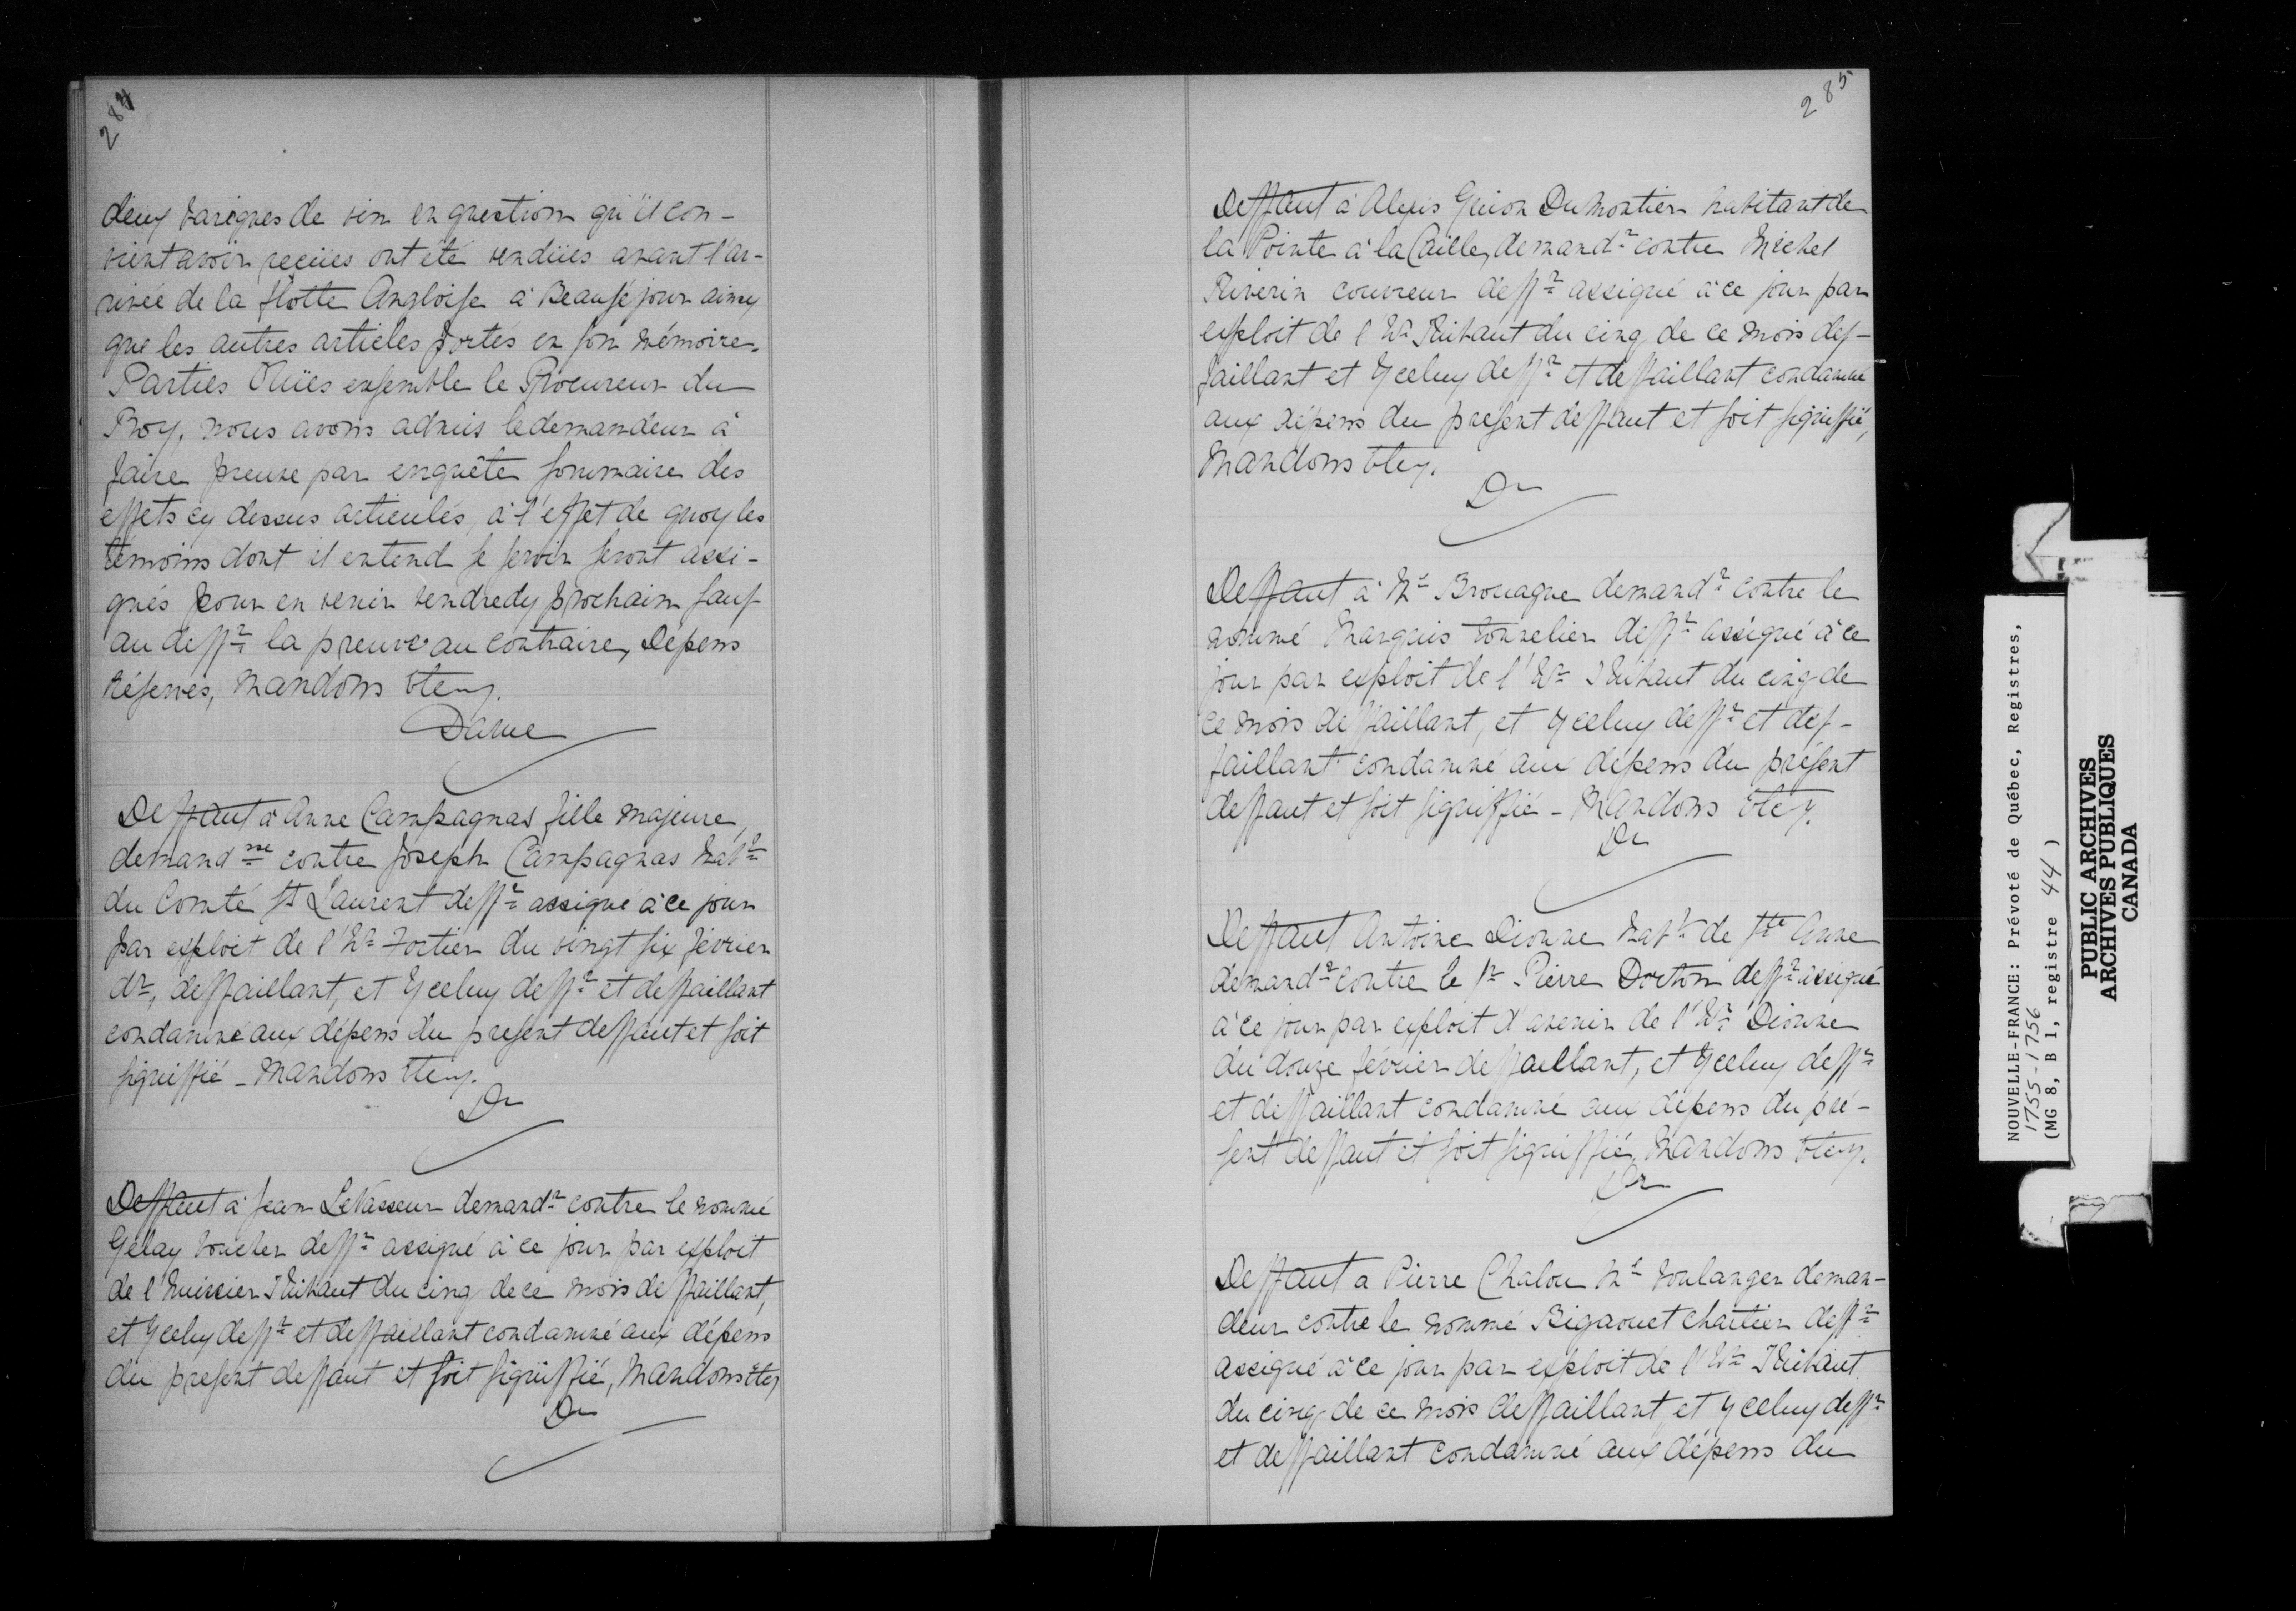 284
deux bariques de vin en question qu'il con-
vient avoir reçües ont été vendües avant l'ar-
rivée de la flotte Angloise à Beauséjour ainsy
que les autres articles portés en son mémoire.
Parties Oüies ensemble le Procureur du
Roy, nous avons admis le demandeur à
faire preuve par enquête sommaire des
effets cy dessus articulés, à l'effet de quoy les
témoins dont il entend se servir seront assi-
gnés pour en venir vendredy prochain sauf
au deffr la preuve au contraire, Dépens
réservés, Mandons etc.
Daine
Deffaut à Anne Campagnas fille majeure,
demandsse contre Joseph Campagnas habt
du Comté St Laurent deffr assigné à ce jour
par exploit de l'hr Fortier du vingt six février
dr, deffaillant, et Yceluy deffr et deffaillant
condamné aux dépens du present deffaut et soit
signiffié - Mandons etc.
Dr
Deffaut à Jean LeVasseur demandr contre le nommé
Gelay boucher deffr assigné à ce jour par exploit
de l'huissier Thibaut du cinq de ce mois deffaillant,
et Yceluy deffr et deffaillant condamné aux dépens
du present deffaut et soit signiffié, Mandons etc
Dr
285
Deffaut à Alexis Guion Dumontier habitant de
la Pointe à la Caille, demandr contre Michel
Riverin couvreur deffr assigné à ce jour par
exploit de l'hr Thibaut du cinq de ce mois def-
faillant et Yceluy deffr et deffaillant condamné
aux dépens du présent deffaut et soit signiffié,
Mandons etc.
Dr
Deffaut à Mr Brouague demandr contre le
nommé Marquis tonnelier deffr assigné à ce
jour par exploit de l'hr Thibaut du cinq de
ce mois deffaillant, et yceluy deffr et def-
faillant condamné aux dépens du présent
deffaut et soit signiffié - Mandons etc.
Dr
Deffaut Antoine Dionne habt de Ste Anne
demandr contre le sr Pierre Dorton deffr assigné
à ce jour par exploit d'avenir de l'hr Dionne
du douze février deffaillant, et Yceluy deffr
et deffaillant condamné aux dépens du pré-
sent deffaut et soit signiffié, Mandons etc.
Dr
Deffaut a Pierre Chalou Md boulanger deman-
deur contre le nommé Bigaouet chartier deffr
assigné à ce jour par exploit de l'hr Thibaut
du cinq de ce mois deffaillant et yceluy deffr
et deffaillant condamné aux dépens du
NOUVELLE-FRANCE: Prévoté de Québec, Registres,
1755-1756
(MG 8, B 1, registre 44)
PUBLIC ARCHIVES
ARCHIVES PUBLIQUES
CANADA